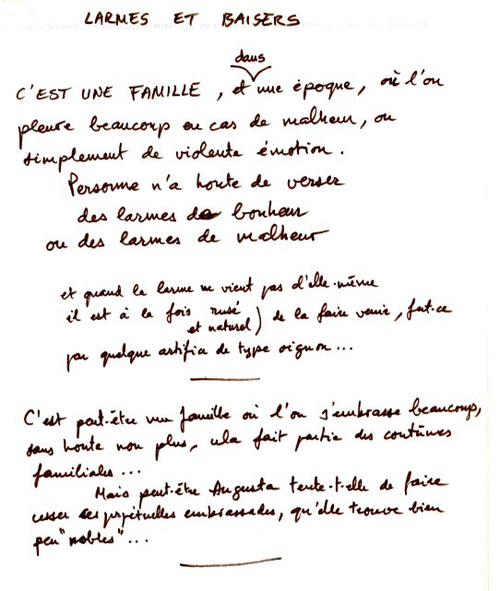 LARMES ET BAISERS
dans
C'EST UNE FAMILLE, et une époque, où l'on
pleure beaucoup en cas de malheur, ou
simplement de violente émotion.
Personne n'a honte de verser
des larmes de bonheur
ou des larmes de malheur
et quand la larme ne vient pas d'elle-même
il est à la fois rusé
et naturel) de la faire venir, fut-ce
par quelque artifice de type oignon...
C'est peut-être une famille où l'on s'embrasse beaucoup,
sans honte non plus, cela fait partie des coutumes
familiales...
Mais peut-être Augusta tente-t-elle de faire
cesser ces perpétuelles embrassades, qu'elle trouve bien
peu "nobles"...